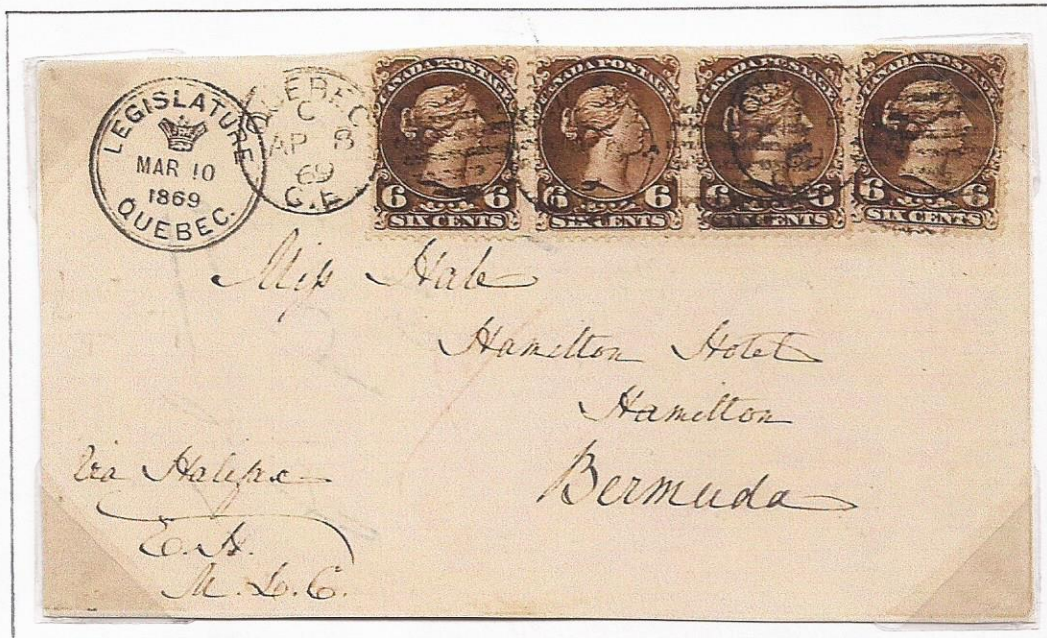 LEGISLATURE
MAR 10
1869
QUEBEC.
QUEBEC
C
AP 8
69
C.E
CANADA POSTAGE
6 6
SIX CENTS
CANADA POSTAGE
6 6
SIX CENTS
CANADA POSTAGE
6 6
SIX CENTS
CANADA POSTAGE
6 6
SIX CENTS
Miss Hale
Hamilton Hotel
Hamilton
Bermuda
Via Halifax
E. H.
M. L. C.